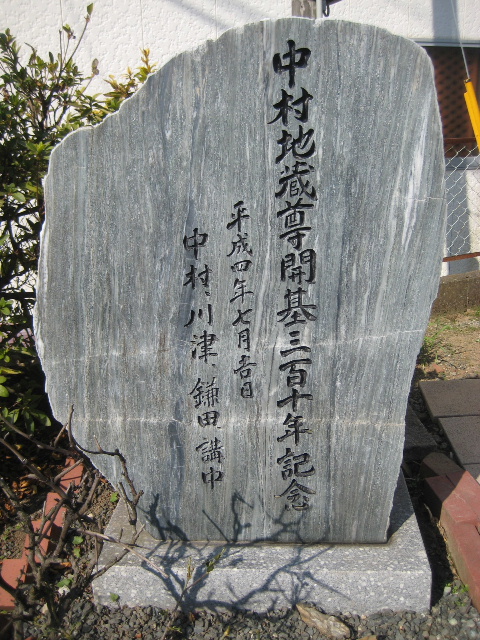 中村地蔵尊開基三百十年記念
平成四年七月吉日
中村、川津、鎌田講中